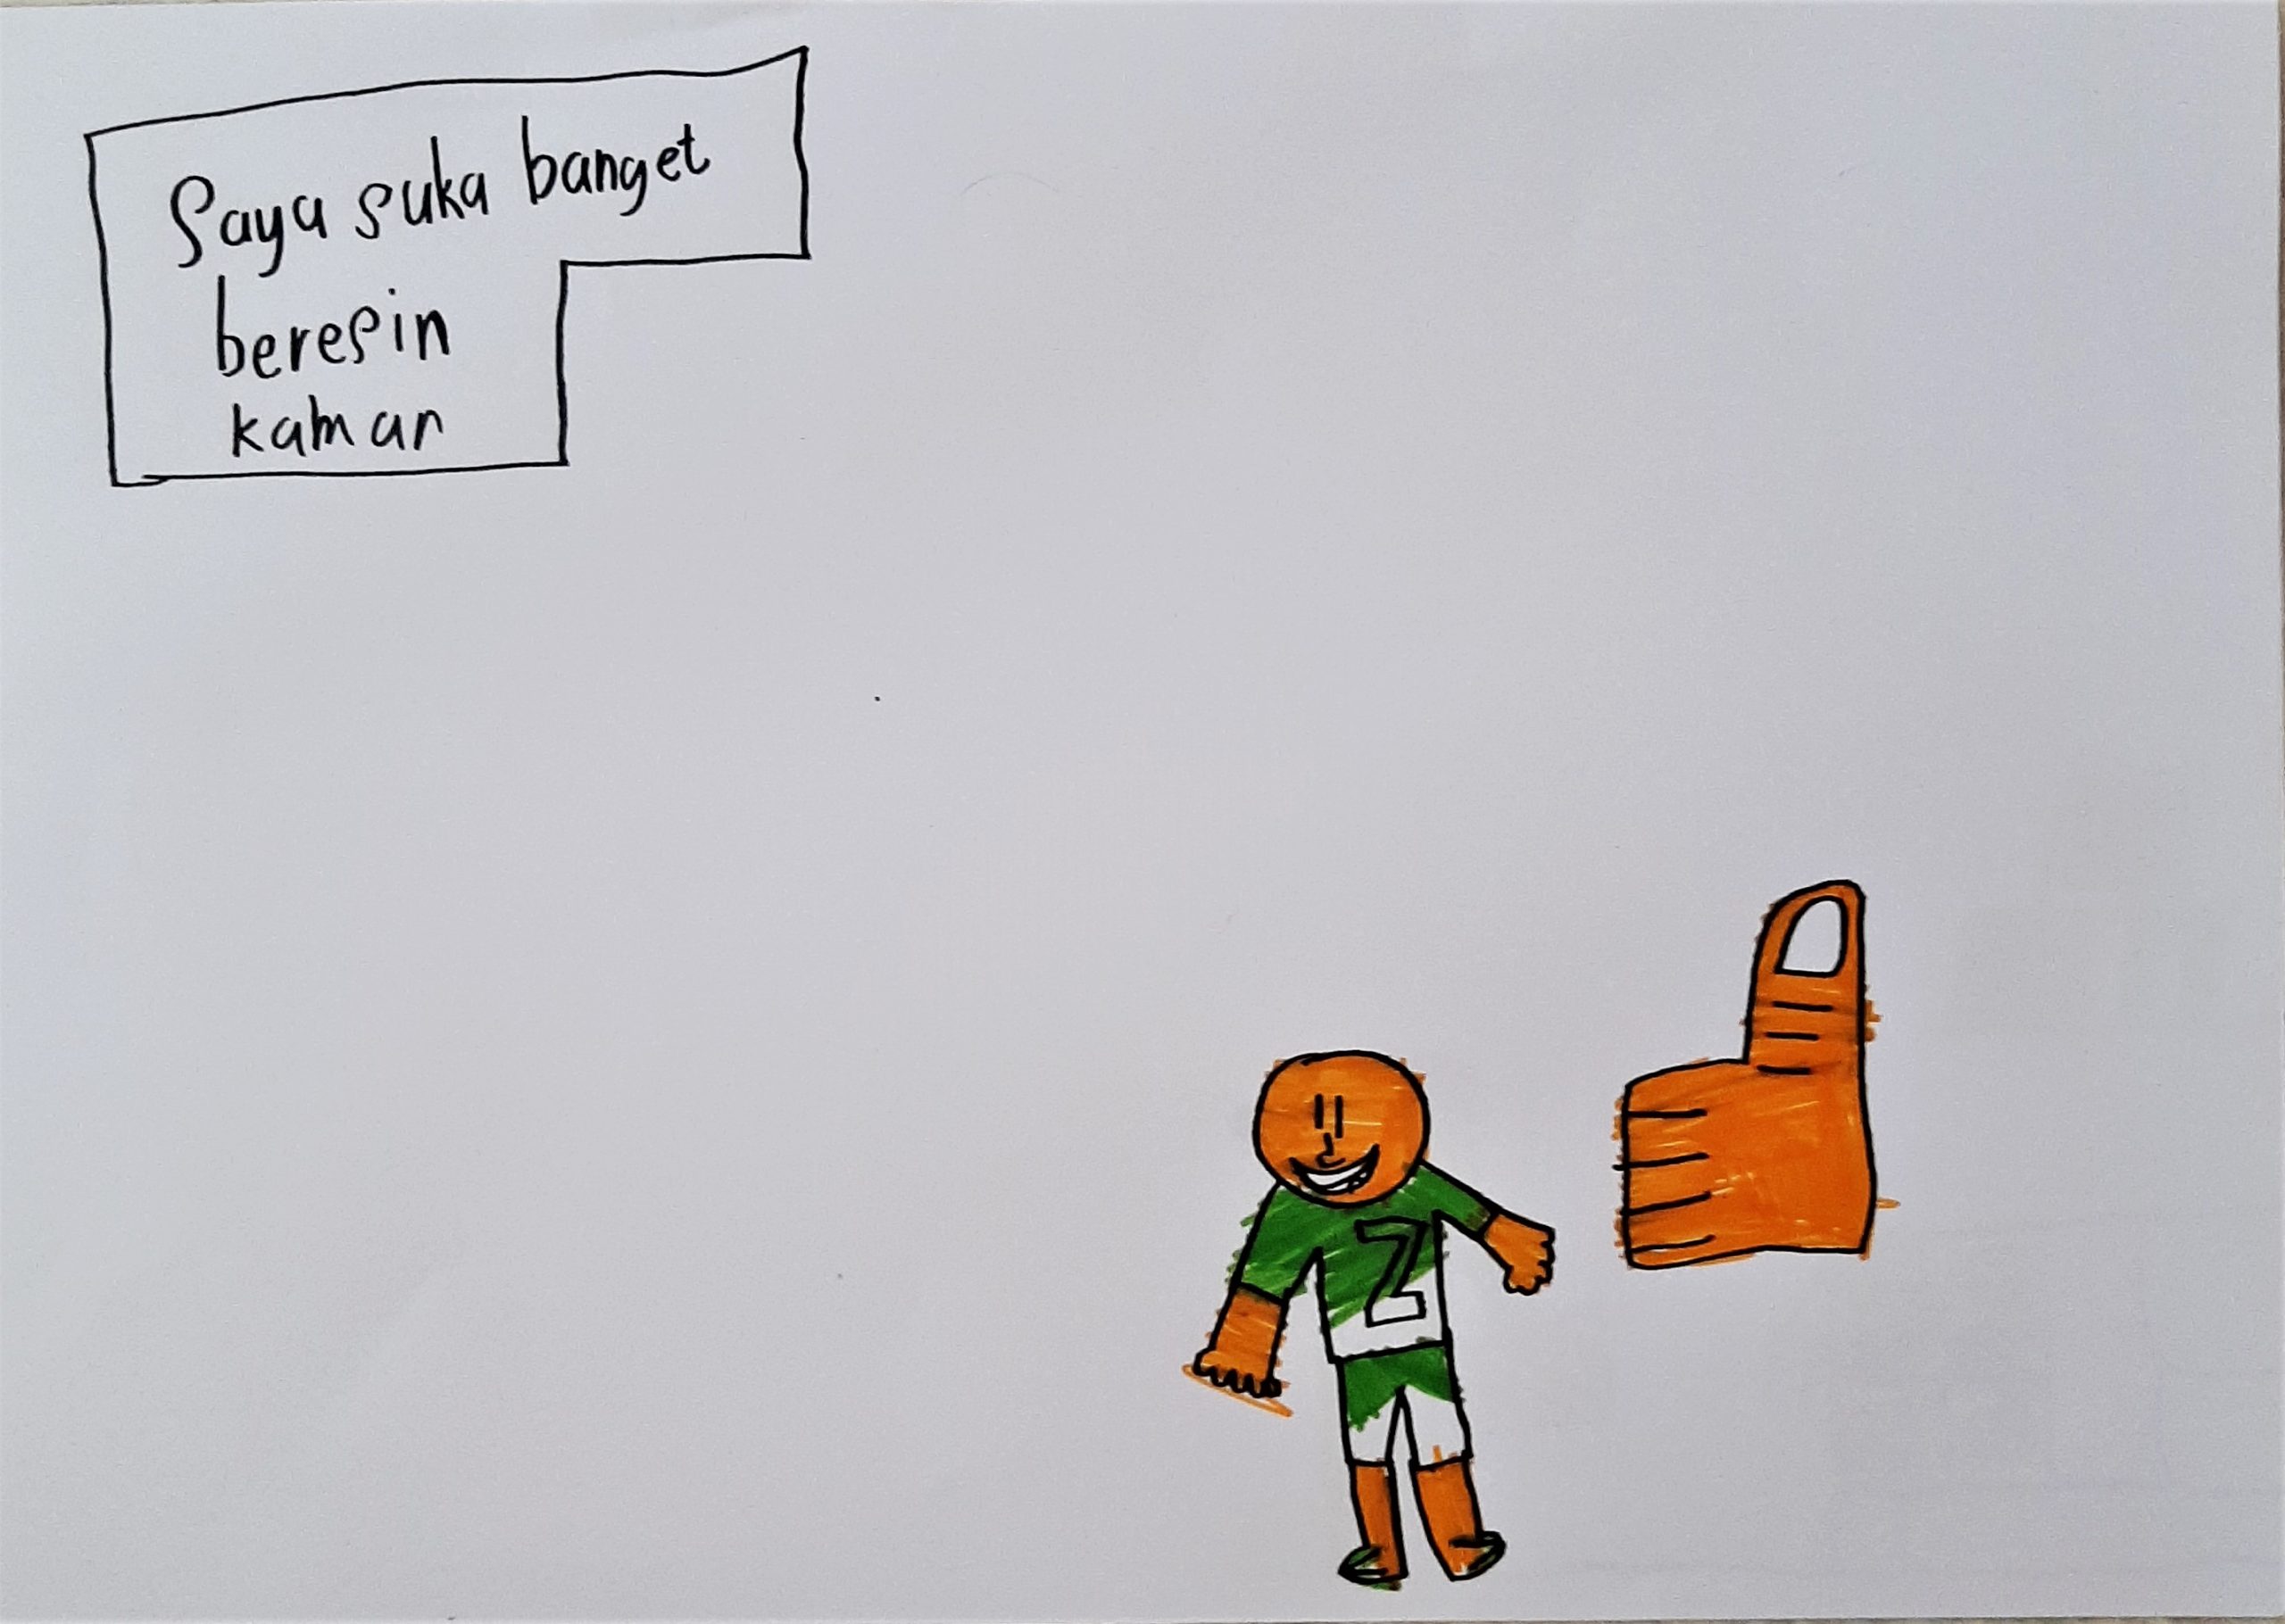 Saya suka banget
beresin
kamar
2